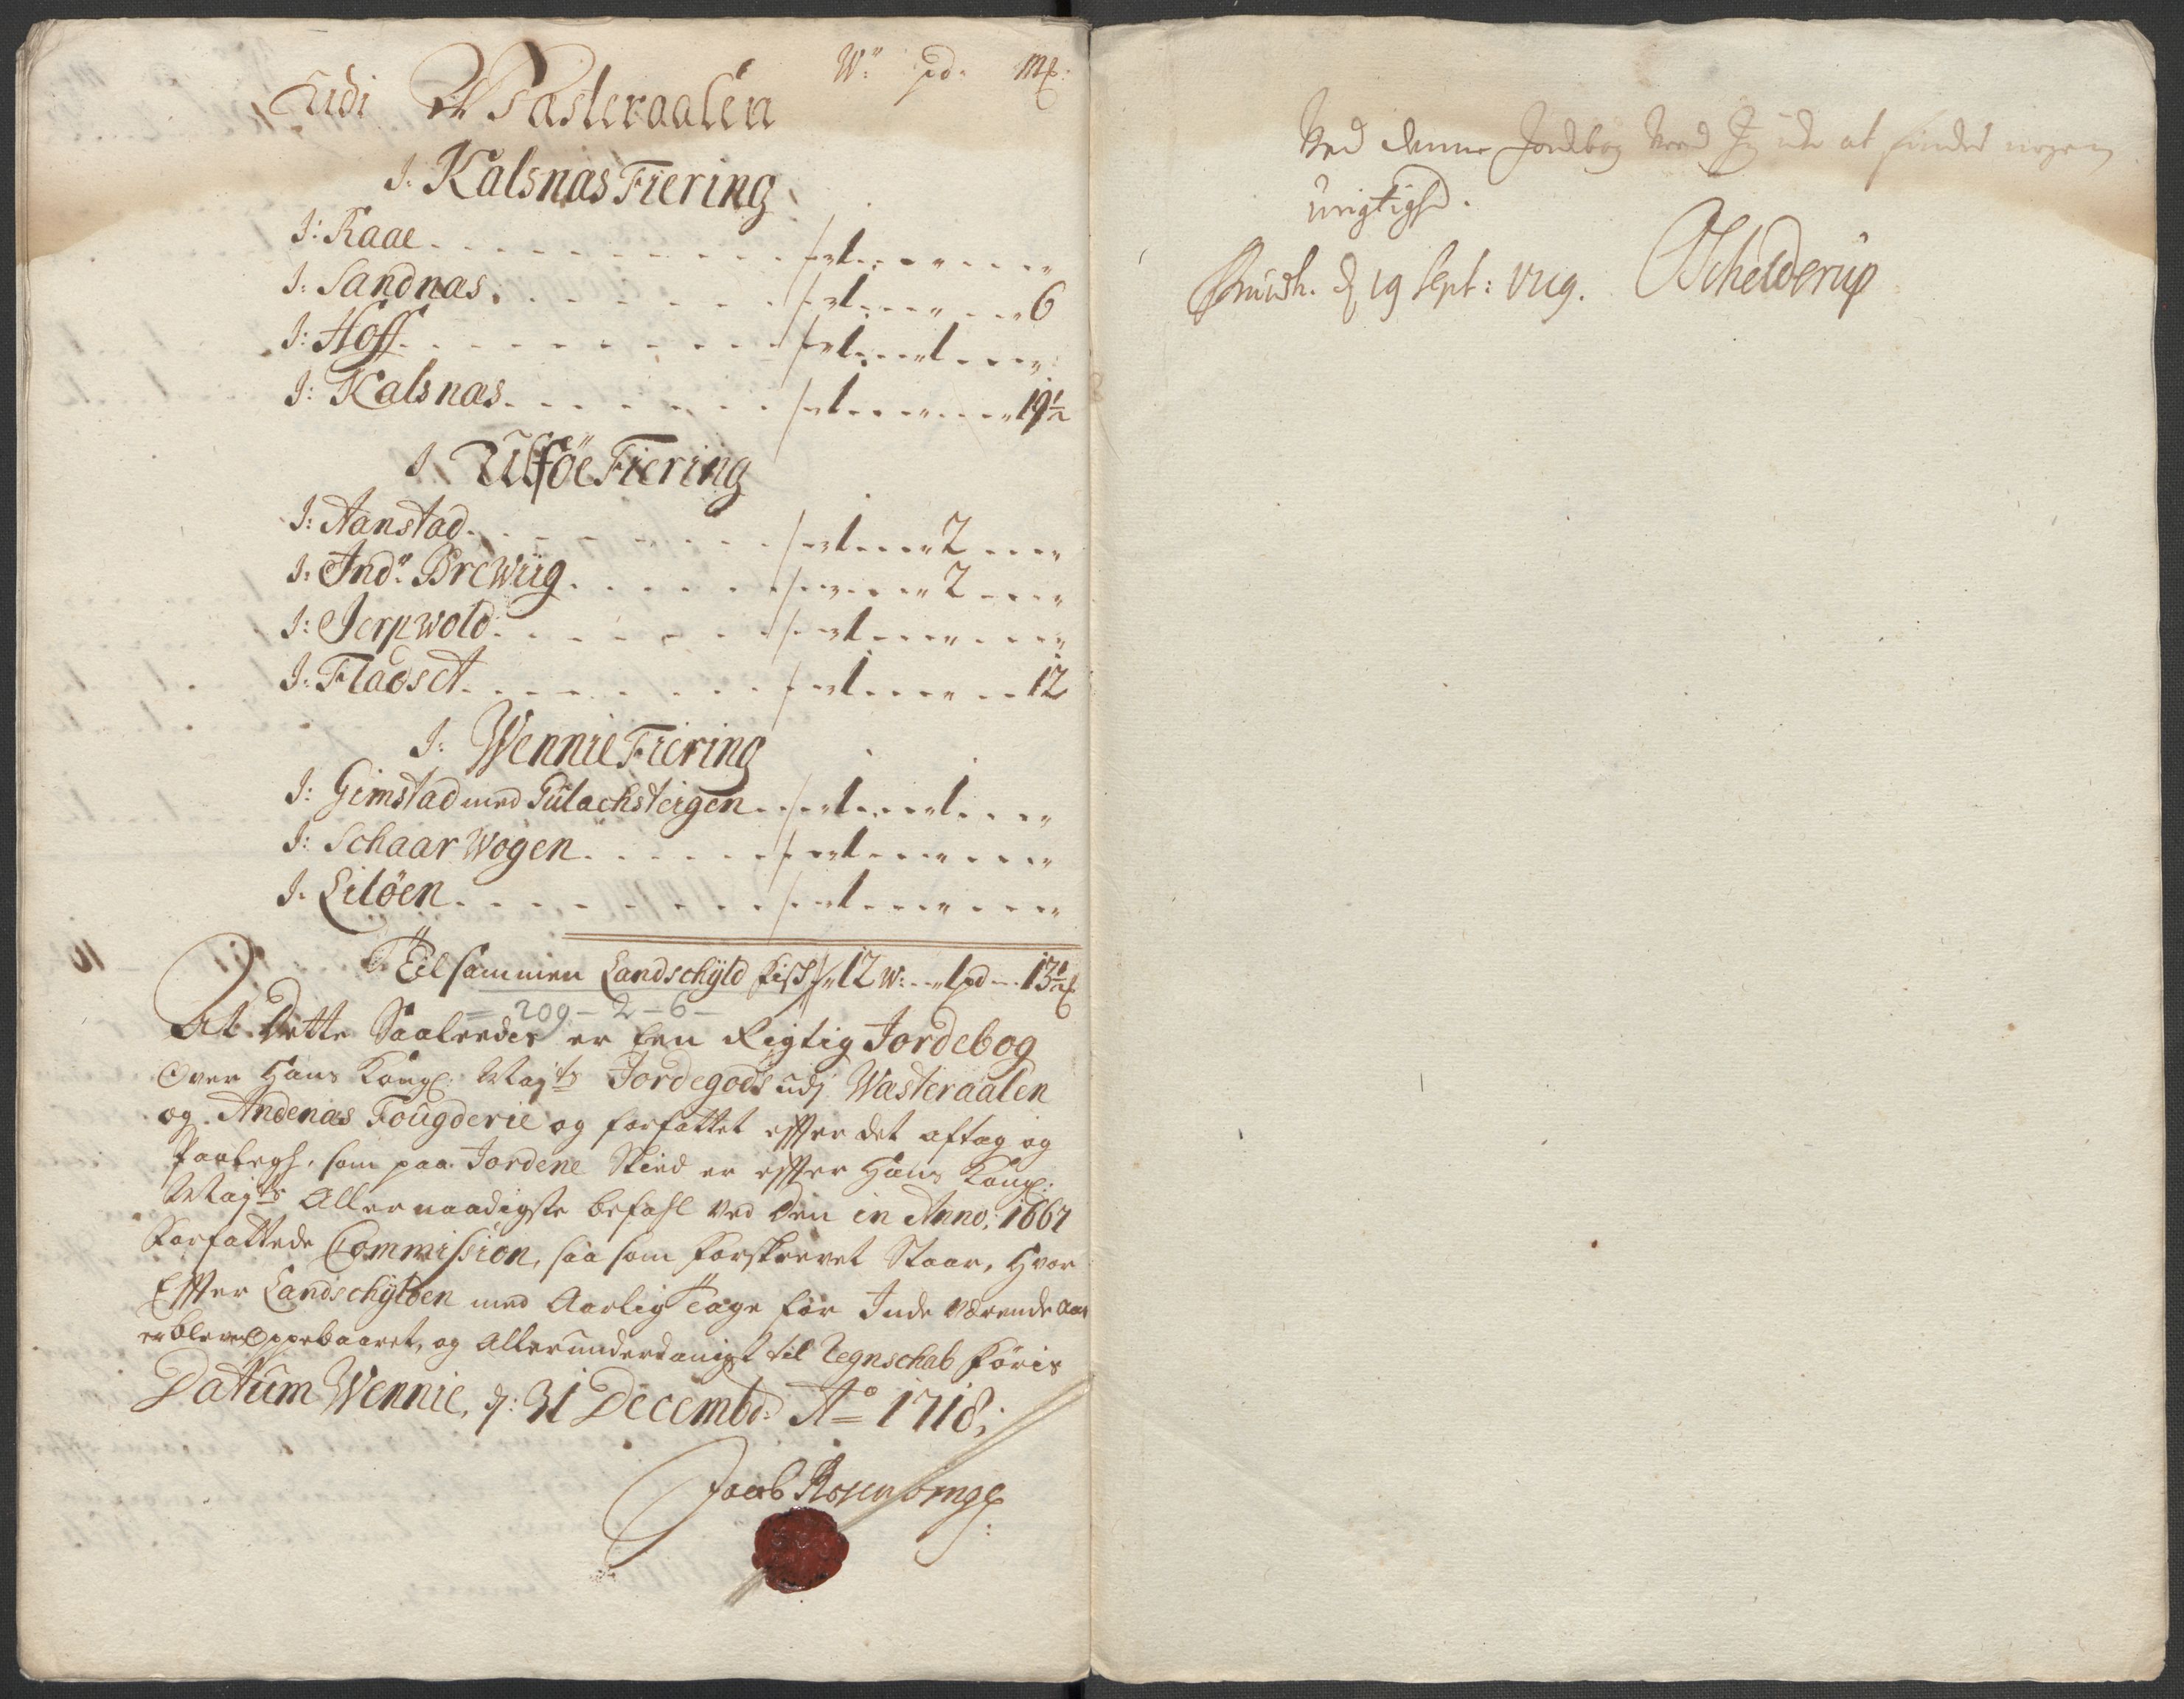 Udi Wæsteraalen W: pd. m℔:
I: Kalsnæs Fiering
I: Raae . . . 1 . . . " . . . "
I: Sandnæs . . . 1 . . . " . . . 6
I: Hoff . . . 1 . . . 1 . . . "
I: Kalsnæs . . . 1 . . . " . . . 19½
I Ulföe Fiering
I: Aanstad . . . 1 . . . 2 . . . "
I: Ind: Brewiig . . . " . . . 2 . . . "
I: Jerpwold . . . 1 . . . " . . . "
I: Fladset . . . 1 . . . " . . . 12
I: Wennie Fiering
I: Gimstad med Gulachsteigen . . . 1 . . . 1 . . . "
I: Schaar Wogen . . . 1 . . . " . . . "
I: Lilöen . . . 1 . . . " . . . "
Tilsammen Landschÿld fisch 12 W: 1 pd 13½ ℔
= 209 - 2 - 6 -
At Dette Saaledes er Een Rigtig Jordebog
Over Hans Kongl: Maÿts Jordegods udj Wæsteraalen
og Andenæs Fougderie og forfattet effter det aftag og
Paalegh, som paa Jordene Skied er effter Hans Kongl:
Maÿts Allernaadigste befahl ved Den in Anno: 1667
Forfattede Commission, saa som forskrevet Staar, Hvor
Effter Landschÿlden med Aarlig Tage for Inde værende Aar
er bleven Oppebaaret, og Allerunderdanigst til Regnschab föris
Datum Wennie, d: 31 Decembr: Ao 1718;
Jacob Rosenvinge
Ved denne Jordebog veed Jeg icke at findes nogen
urigtighed.
Trundh. d 19 Sept: 1719. Schelderup